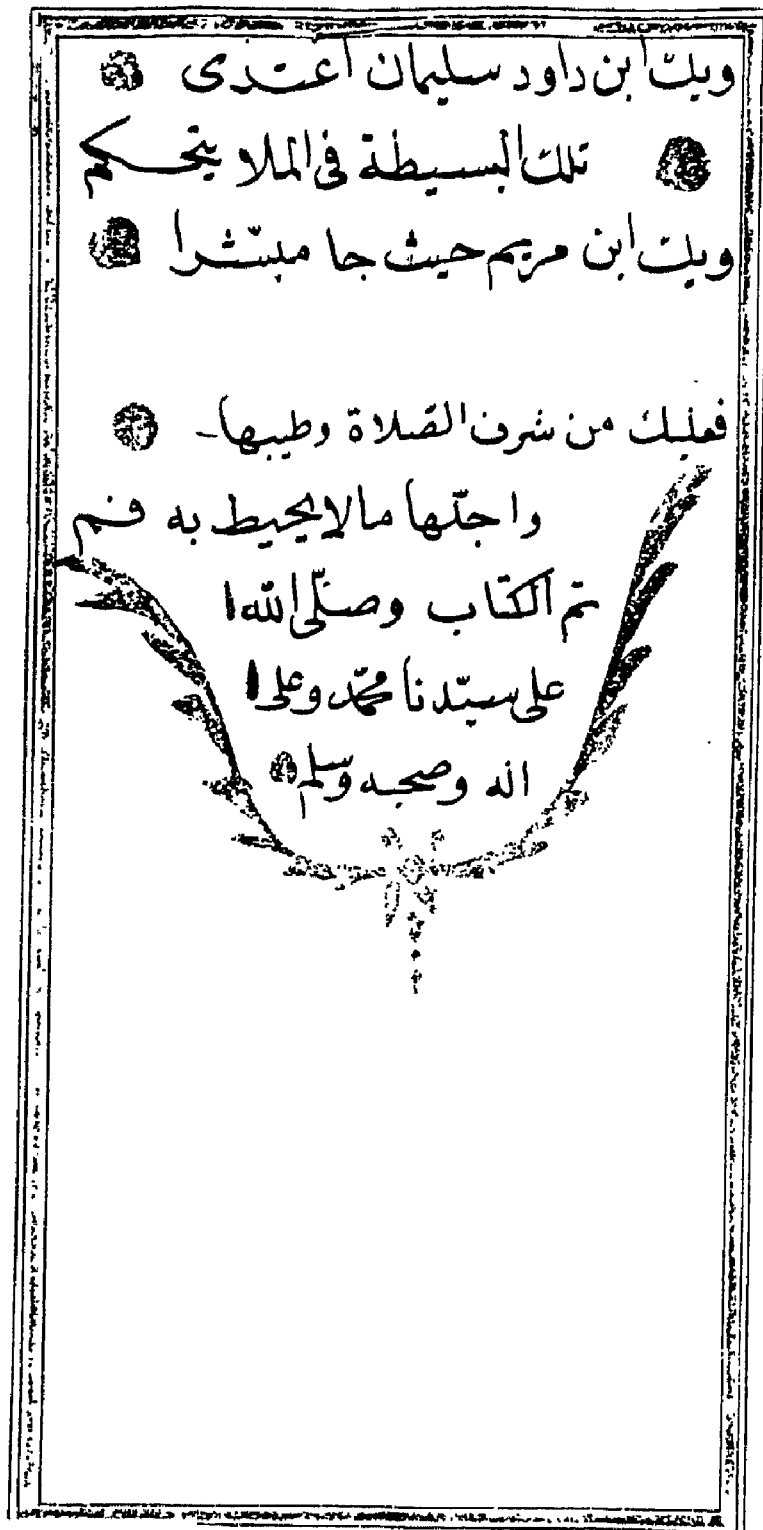 وبك ابن داود سليمان اغتذى
تلك البسيطة فى الملا يتحكم
وبك ابن مريم حيث جا مبشرا
فعليك من شرف الصّلاة وطيبها
واجلّها مالا يحيط به فم
تم الكتاب وصلّى الله
على سيّدنا محمّد وعلى
اله وصحبه وسلم